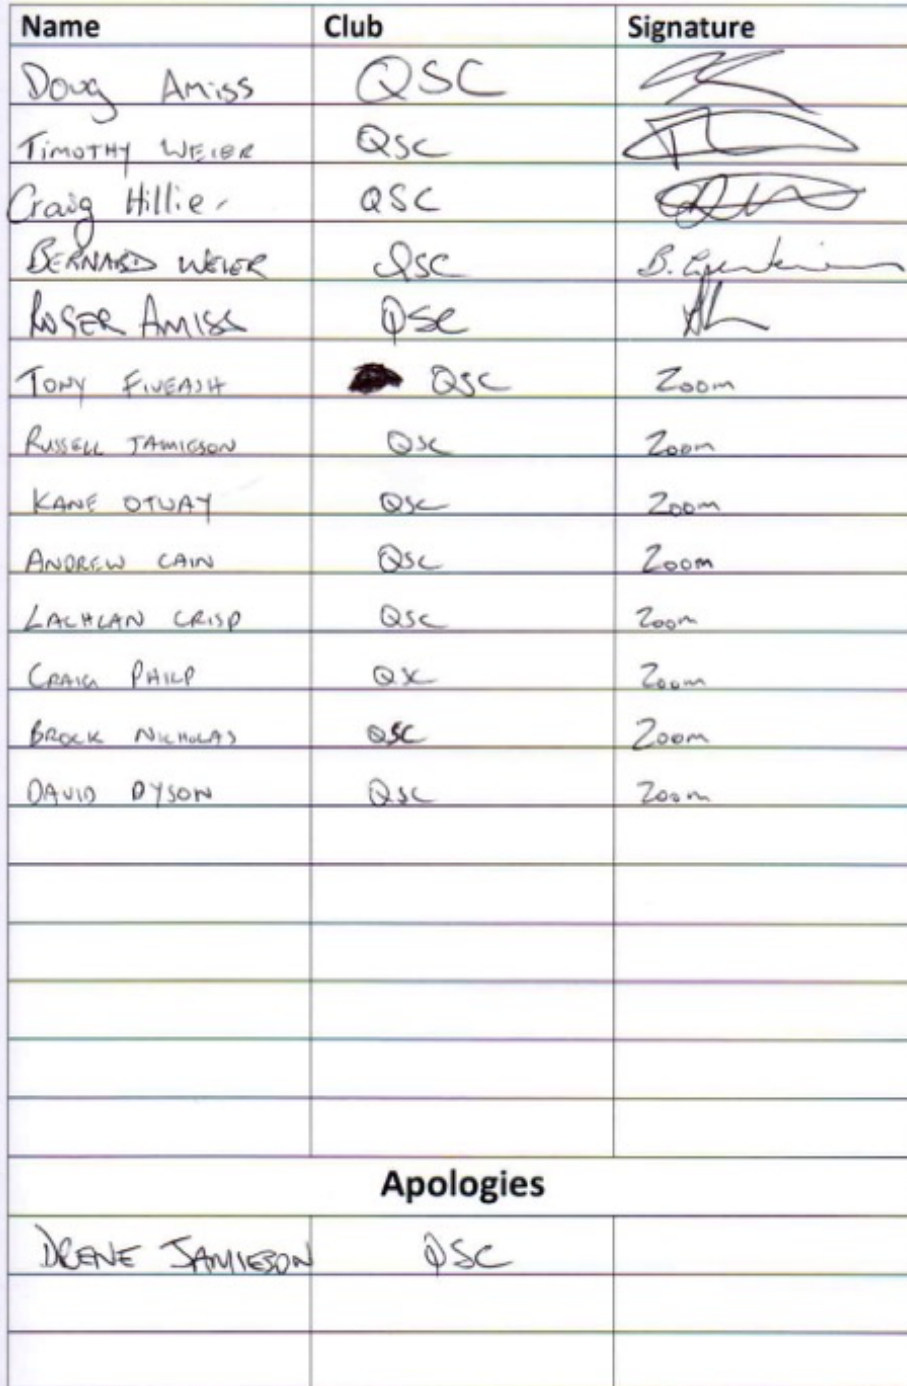 Name Club Signature
Doug Amiss QSC
TIMOTHY WEIER QSC
Craig Hillier QSC
BERNARD WEIER QSC B.
ROGER AMISS QSC
TONY FIVEASH QSC Zoom
RUSSELL JAMIESON QSC Zoom
KANE OTWAY QSC Zoom
ANDREW CAIN QSC Zoom
LACHLAN CRISP QSC Zoom
CRAIG PHILP QSC Zoom
BROCK NICHOLAS QSC Zoom
DAVID DYSON QSC Zoom
Apologies
DRENE JAMIESON QSC